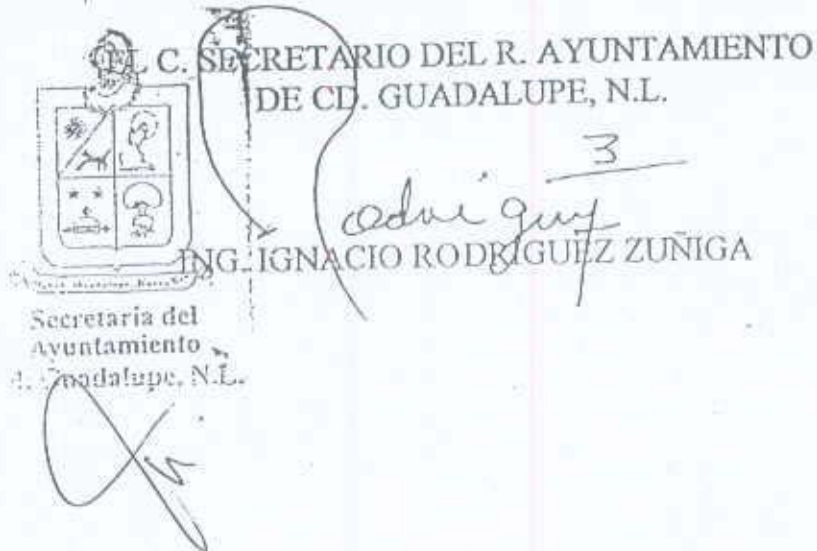 EL C. SECRETARIO DEL R. AYUNTAMIENTO
DE CD. GUADALUPE, N.L.
3
ING. IGNACIO RODRIGUEZ ZUÑIGA
Secretaria del
Ayuntamiento
Guadalupe, N.L.